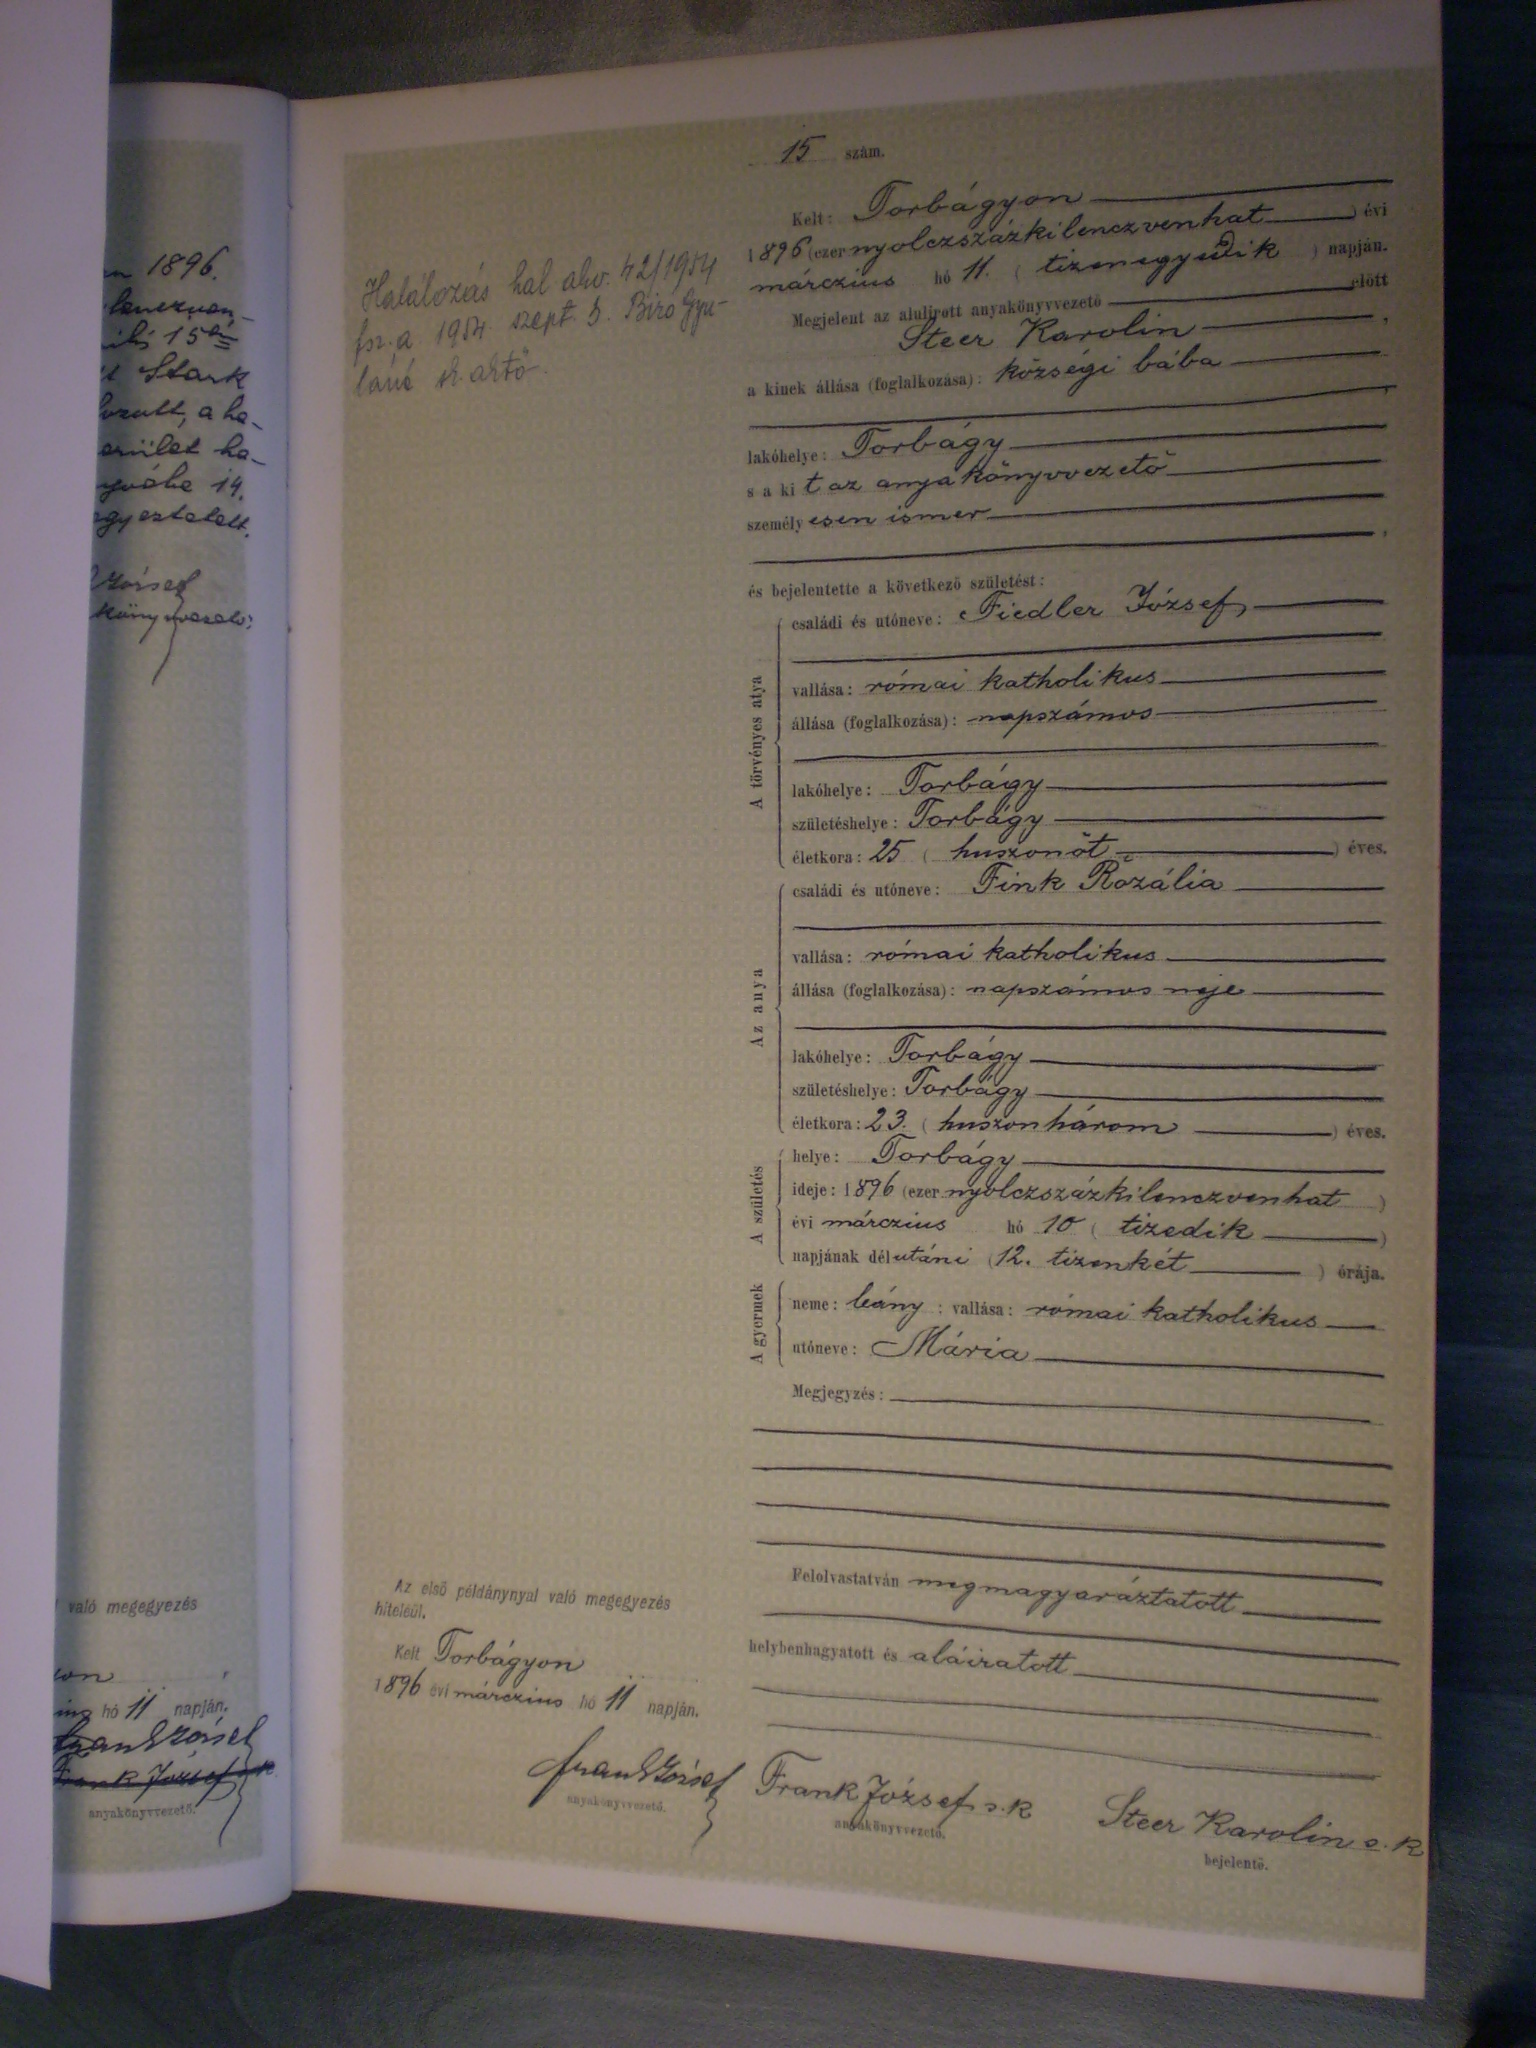 1896.
15én
Stark
a ha-
ha-
14.
József
való megegyezés
hó 11 napján.
Frank József
Frank József sk
anyakönyvvezető.
15 szám.
Halálozás hal akv. 42/1954
fsz. a. 1954. szept 5. Biró Gyu-
láné
Kelt: Torbágyon
1896 (ezer nyolczszázkilenczvenhat) évi
márczius hó 11. (tizenegyedik) napján.
Megjelent az alulirott anyakönyvvezető előtt
Steer Karolin,
a kinek állása (foglalkozása): községi bába
lakóhelye: Torbágy
s a kit az anyakönyvvezető
személyesen ismer,
és bejelentette a következő születést:
A törvényes atya
családi és utóneve: Fiedler József
vallása: római katholikus
állása (foglalkozása): napszámos
lakóhelye: Torbágy
születéshelye: Torbágy
életkora: 25 (huszonöt) éves.
Az anya
családi és utóneve: Fink Rozália
vallása: római katholikus
állása (foglalkozása): napszámos neje
lakóhelye: Torbágy
születéshelye: Torbágy
életkora: 23. (huszonhárom) éves.
A születés
helye: Torbágy
ideje: 1896 (ezer nyolczszázkilenczvenhat)
évi márczius hó 10 (tizedik)
napjának délutáni (12. tizenkét) órája.
A gyermek
neme: leány; vallása: római katholikus
utóneve: Mária
Megjegyzés:
Felolvastatván megmagyaráztatott
helybenhagyatott és aláiratott
Az első példánynyal való megegyezés
hiteléül.
Kelt Torbágyon
1896 évi márczius hó 11 napján.
Frank József
anyakönyvvezető.
Frank József s. k
anyakönyvvezető.
Steer Karolin s. k
bejelentő.